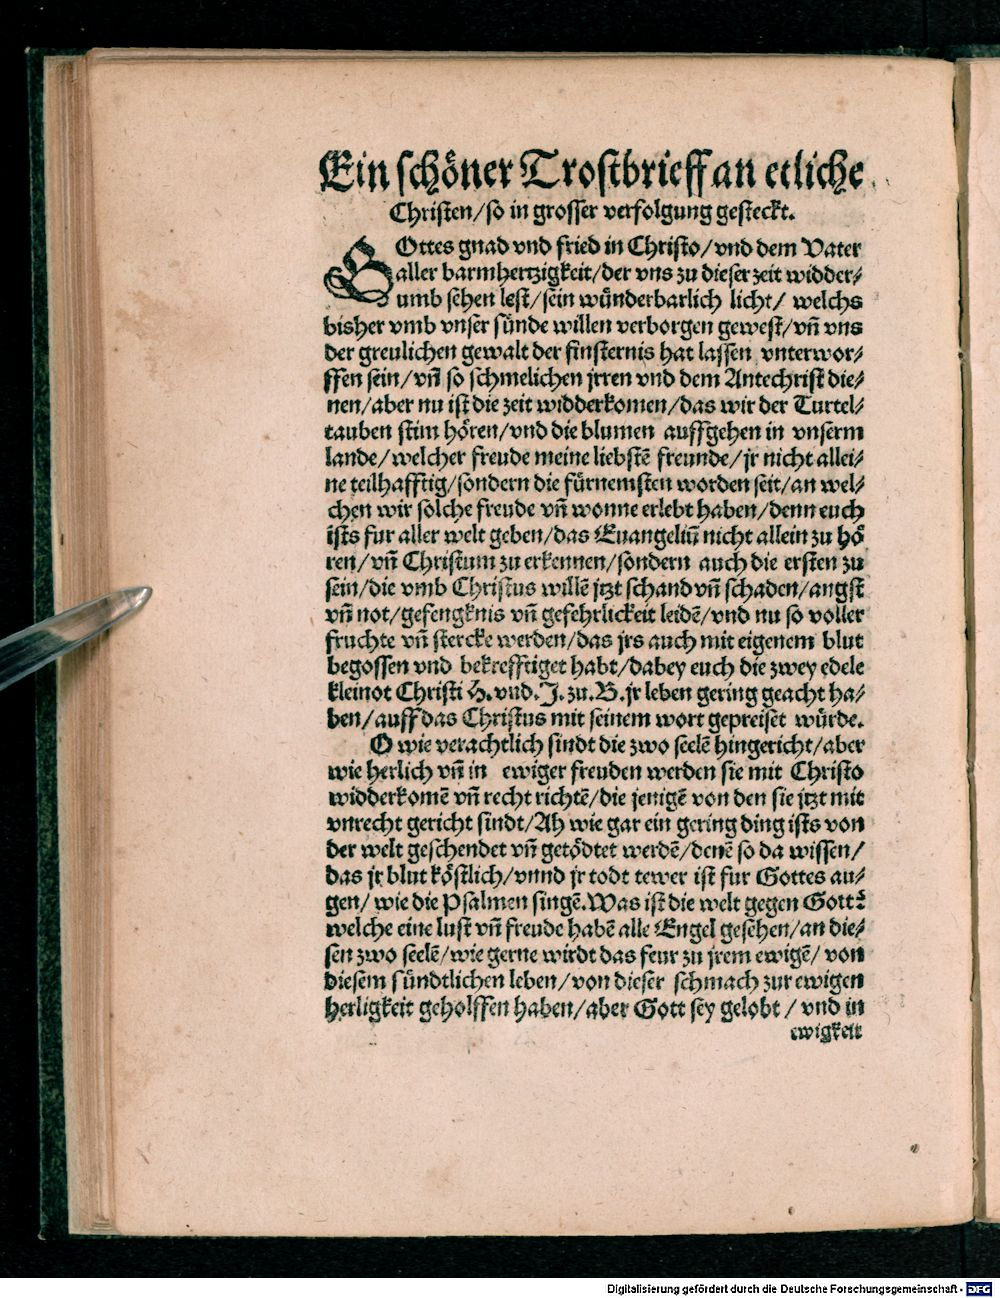 Ein schöner Trostbrieff an etliche
Christen/so in grosser verfolgung gesteckt.
GOttes gnad vnd fried in Christo/vnd dem Vater
aller barmhertzigkeit/der vns zu dieser zeit widder-/
umb sehen lest/sein wünderbarlich licht/ welchs
bisher vmb vnser sünde willen verborgen gewest/vñ vns
der greulichen gewalt der finsternis hat lassen vnterwor-/
ffen sein/vñ so schmelichen jrren vnd dem Antechrist die-/
nen/aber nu ist die zeit widderkomen/das wir der Turtel-/
tauben stim hören/vnd die blumen auffgehen in vnserm
lande/welcher freude meine liebstē freunde/jr nicht allei-/
ne teilhafftig/sondern die fürnemsten worden seit/an wel-/
chen wir solche freude vñ wonne erlebt haben/denn euch
ists fur aller welt geben/das Euangeliū nicht allein zu hö
ren/vñ Christum zu erkennen/sondern auch die ersten zu
sein/die vmb Christus willē jtzt schand vñ schaden/angst
vñ not/gefengknis vñ gefehrlickeit leidē/vnd nu so voller
fruchte vñ stercke werden/das jrs auch mit eigenem blut
begossen vnd bekrefftiget habt/dabey euch die zwey edele
kleinot Christi H.vnd.J.zu.B.jr leben gering geacht ha-/
ben/auff das Christus mit seinem wort gepreiset würde.
O wie verachtlich sindt die zwo seelē hingericht/aber
wie herlich vñ in ewiger freuden werden sie mit Christo
widderkomē vñ recht richtē/die jenigē von den sie jtzt mit
vnrecht gericht sindt/Ah wie gar ein gering ding ists von
der welt geschendet vñ getödtet werdē/denē so da wissen/
das jr blut köstlich/vnnd jr todt tewer ist fur Gottes au-/
gen/ wie die Psalmen singē.Was ist die welt gegen Gott?
welche eine lust vñ freude habē alle Engel gesehen/an die-/
sen zwo seelē/wie gerne wirdt das feur zu jrem ewigē/ von
diesem sündtlichen leben/von dieser schmach zur ewigen
herligkeit geholffen haben/aber Gott sey gelobt / vnd in
ewigkeit
Digitalisierung gefördert durch die Deutsche Forschungsgemeinschaft - DFG